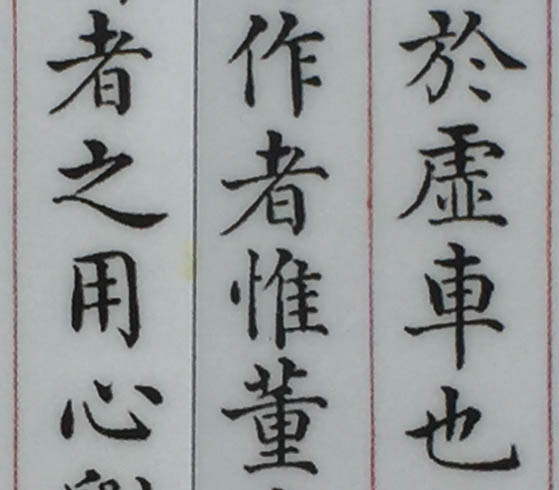 於虛車也
作者惟董
者之用心